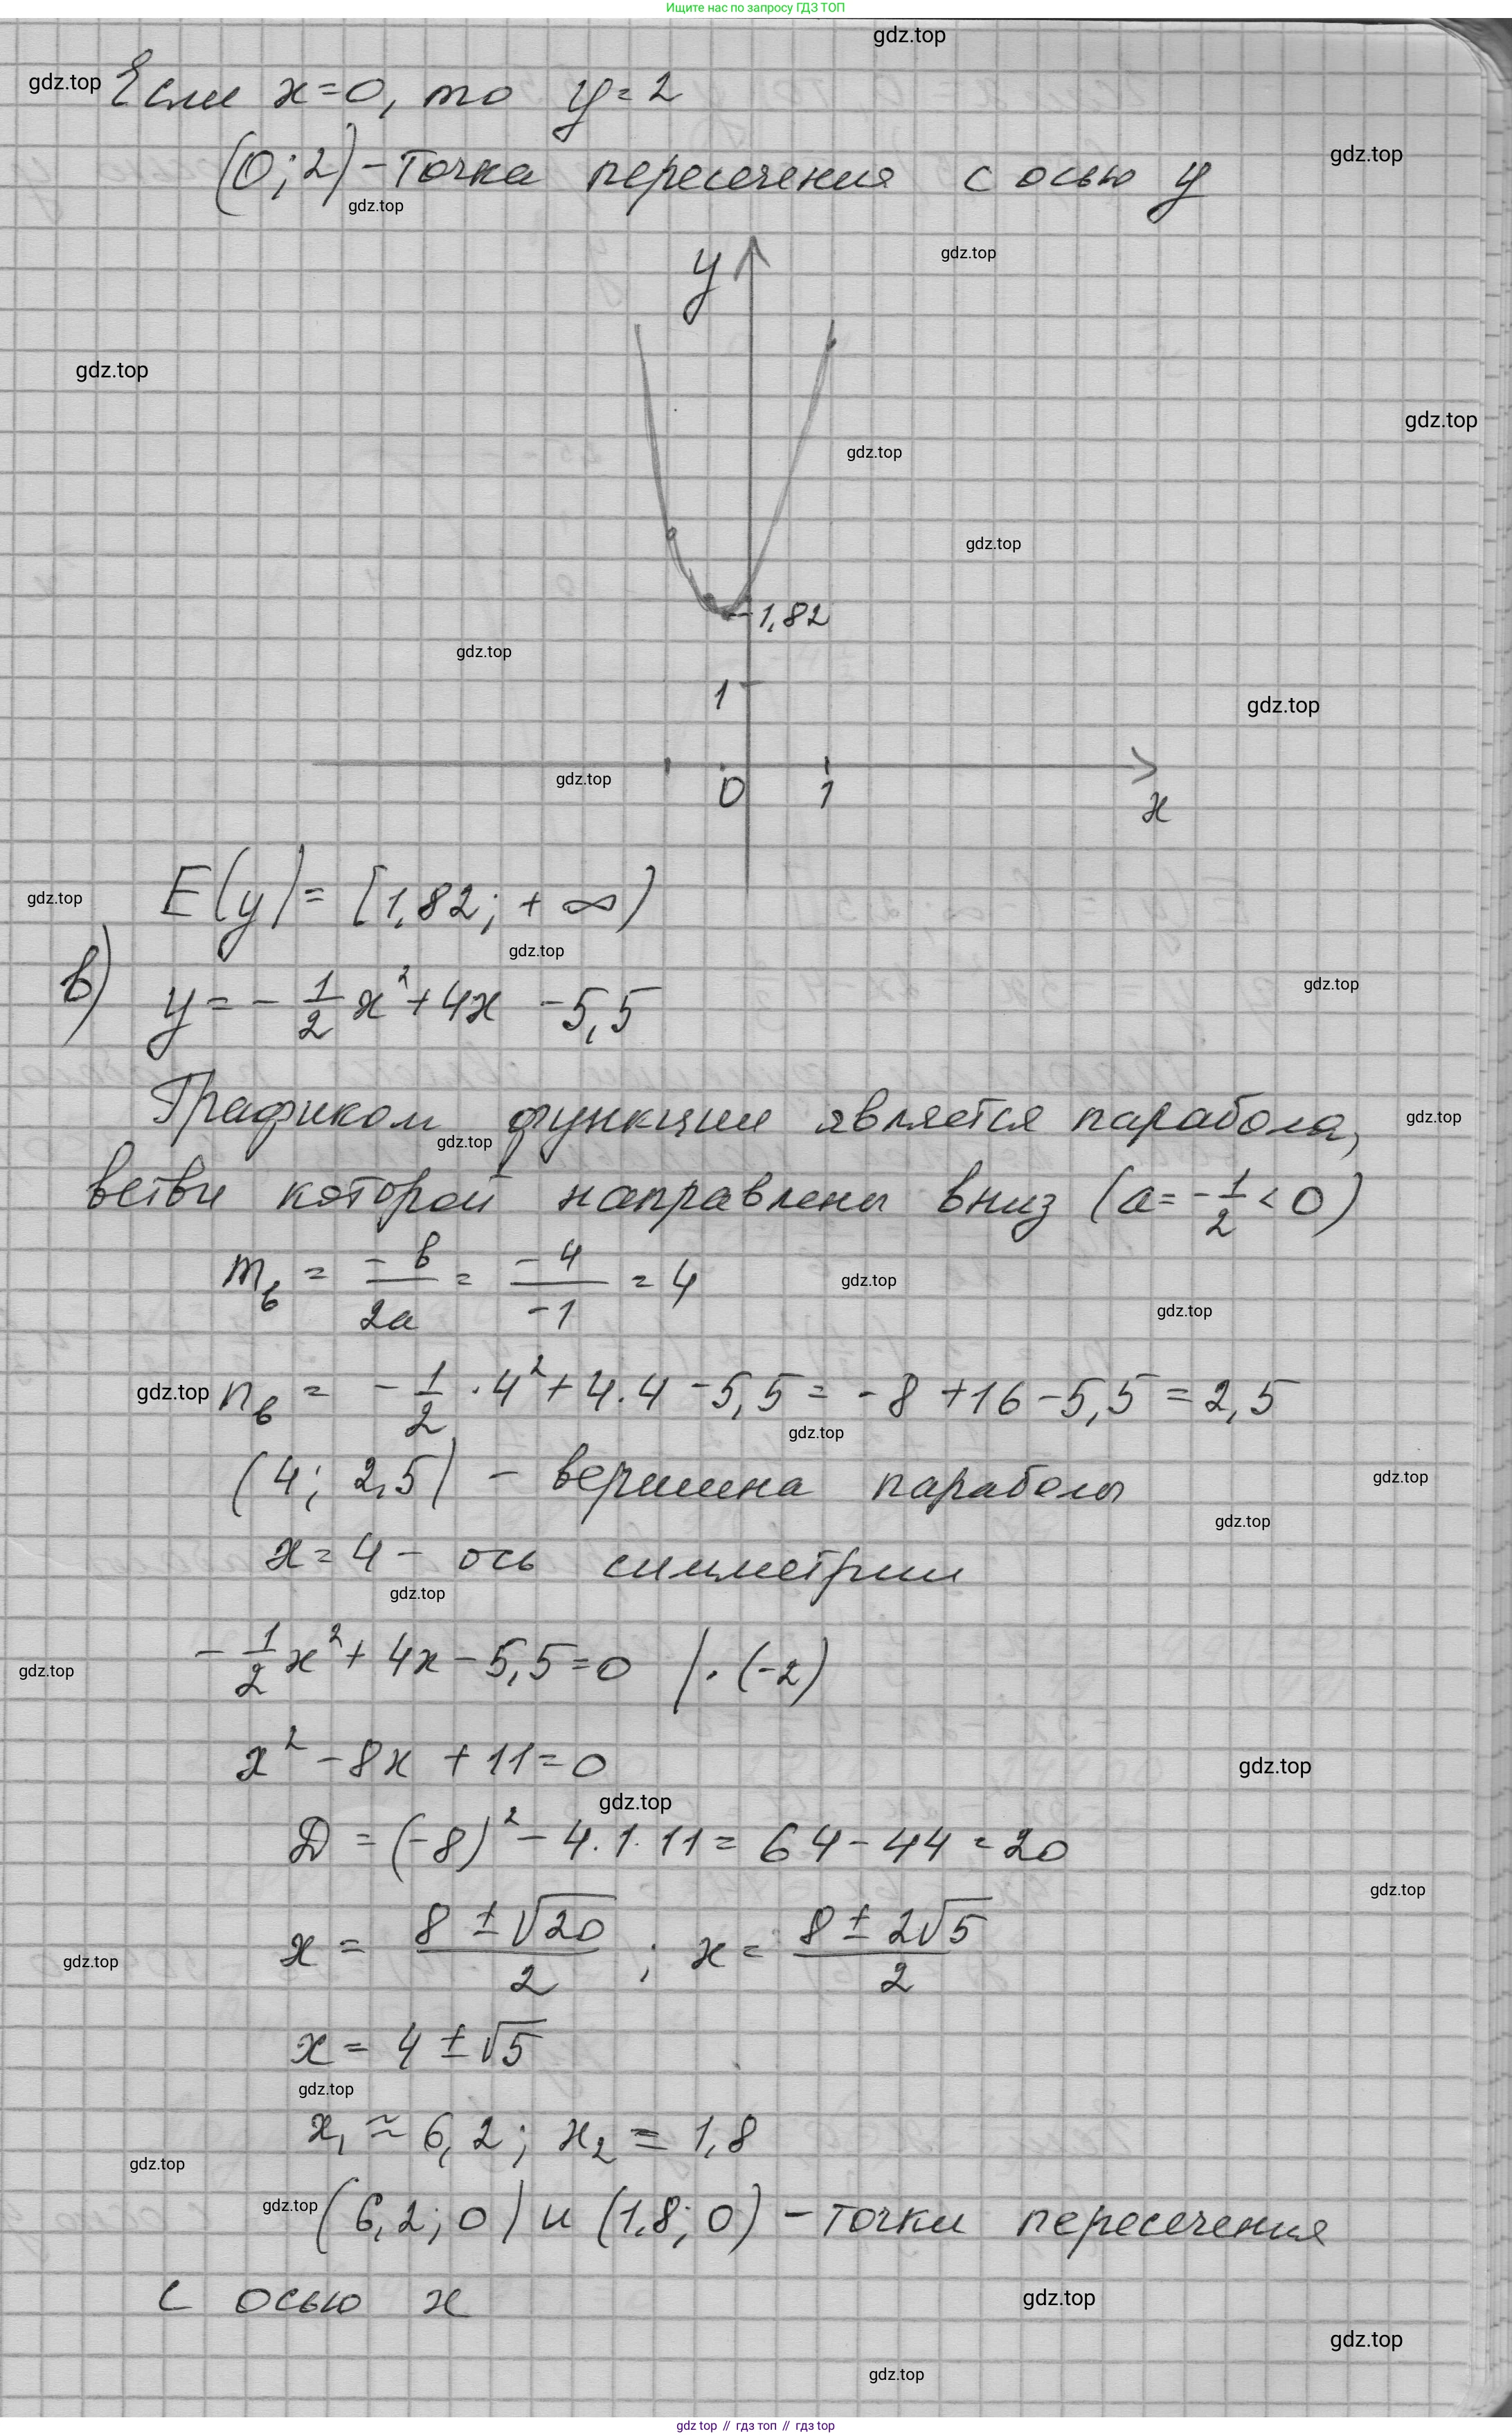 Ищите нас по запросу ГДЗ ТОП
gdz.top
gdz.top Если x=0, то y=2
(0; 2) - точка пересечения с осью y
gdz.top
gdz.top
y
gdz.top
gdz.top
gdz.top
gdz.top
gdz.top
1,82
gdz.top
1
gdz.top
gdz.top
0 1
x
gdz.top
E(y) = [1,82; +∞)
gdz.top
в) y = -1/2 x² + 4x - 5,5
gdz.top
Графиком функции является парабола,
gdz.top
gdz.top
ветви которой направлены вниз (a = -1/2 < 0)
m_в = -в/2a = -4/-1 = 4
gdz.top
gdz.top
gdz.top n_в = -1/2 · 4² + 4 · 4 - 5,5 = -8 + 16 - 5,5 = 2,5
gdz.top
(4; 2,5) - вершина параболы
gdz.top
gdz.top
x = 4 - ось симметрии
gdz.top
-1/2 x² + 4x - 5,5 = 0 | · (-2)
gdz.top
x² - 8x + 11 = 0
gdz.top
gdz.top
D = (-8)² - 4 · 1 · 11 = 64 - 44 = 20
gdz.top
x = 8 ± √20/2 ; x = 8 ± 2√5/2
gdz.top
x = 4 ± √5
gdz.top
x₁ ≈ 6,2; x₂ = 1,8
gdz.top
gdz.top (6,2; 0) и (1,8; 0) - точки пересечения
с осью x
gdz.top
gdz.top
gdz.top
gdz top // гдз топ // гдз top